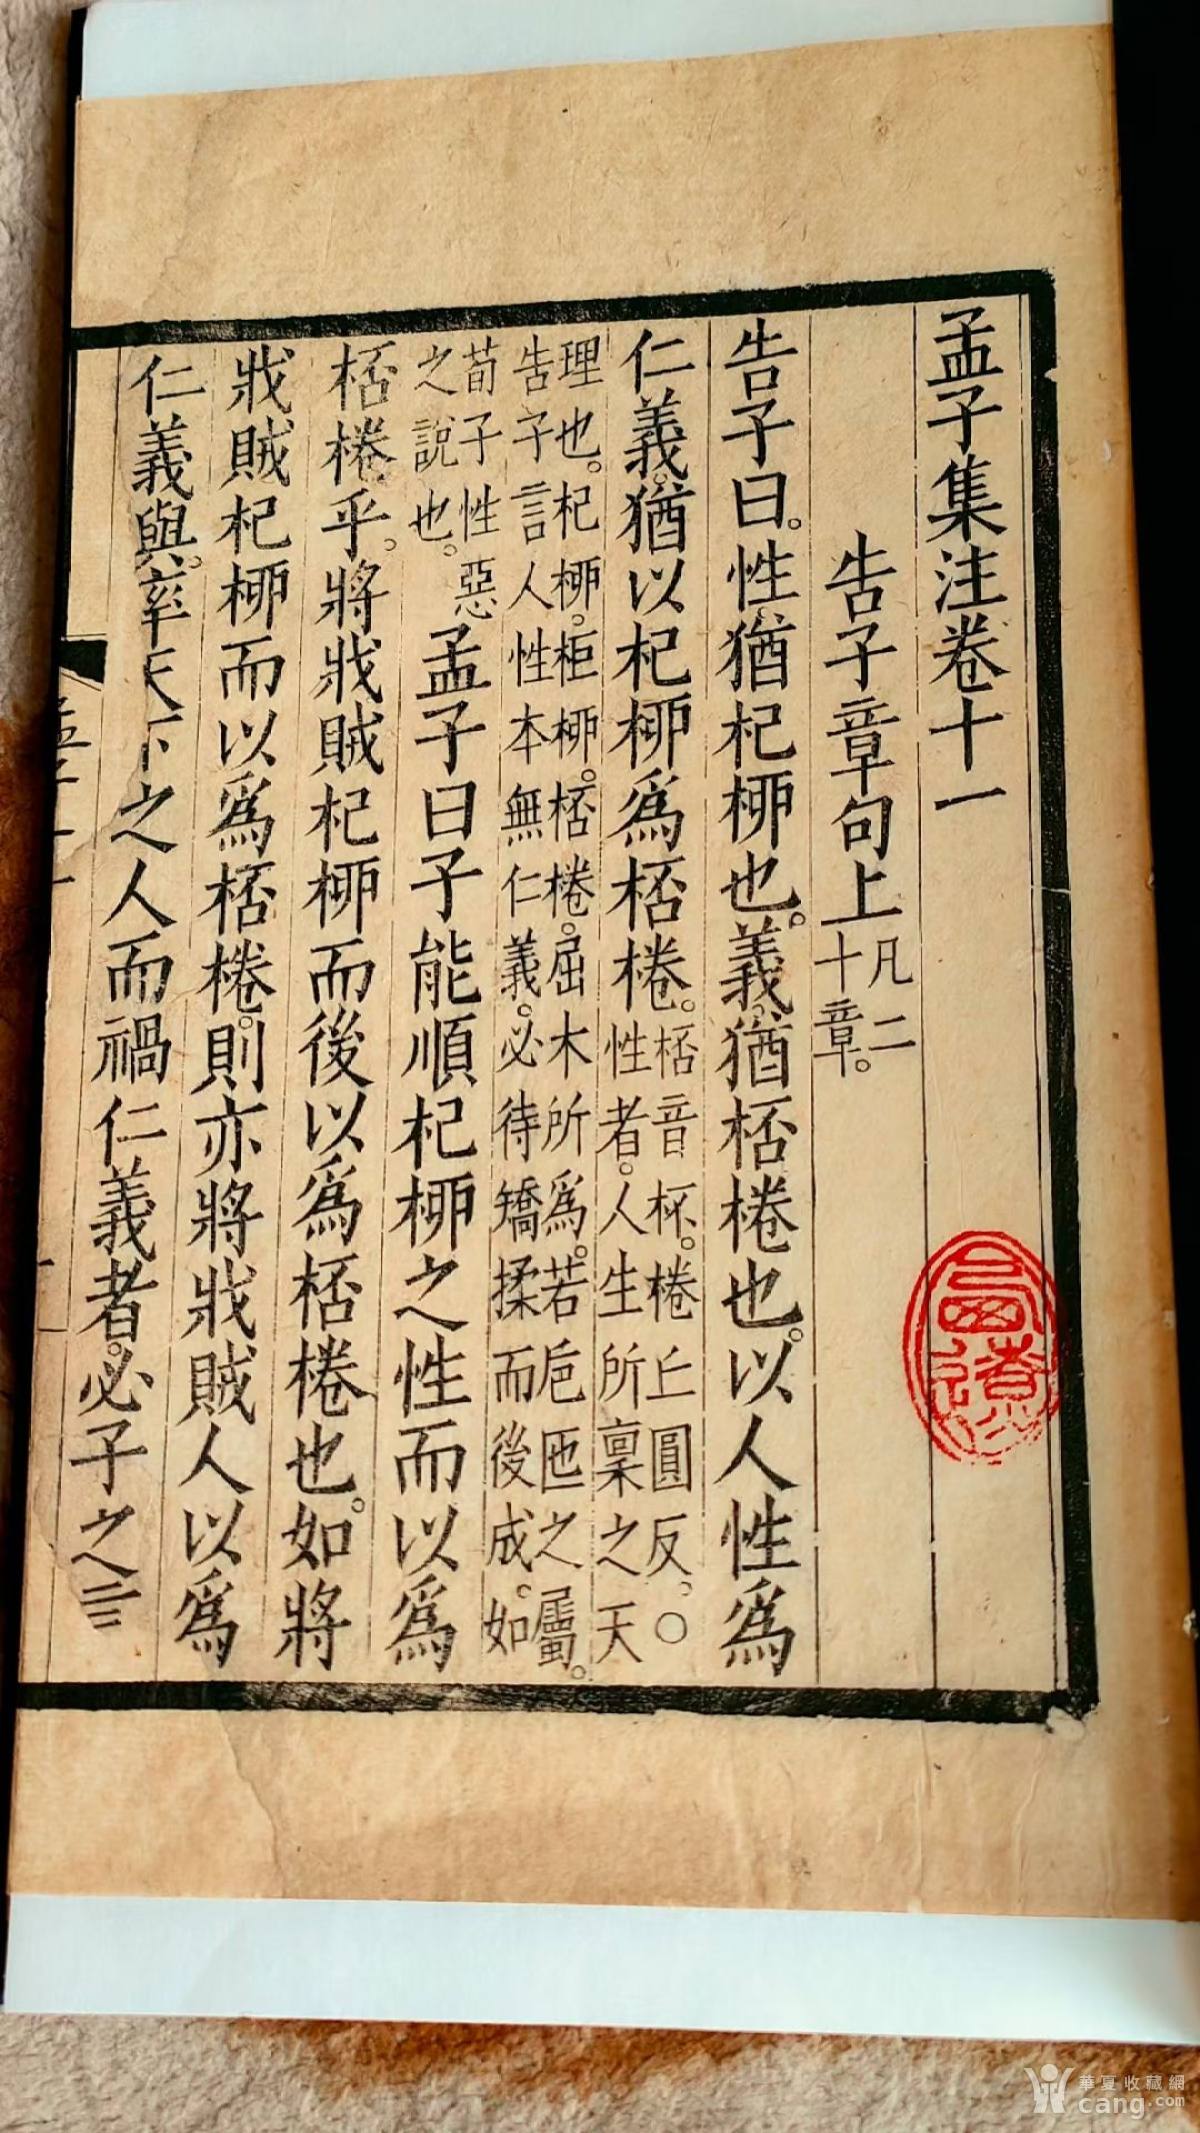 孟子集注卷十一
告子章句上
凡二
十章。
告子曰。性猶杞柳也。義。猶桮棬也。以人性爲
仁義。猶以杞柳爲桮棬。
桮音杯。棬丘圓反。○
性者。人生所稟之天
理也。杞柳。柜柳。桮棬。屈木所爲。若卮匜之屬。
告子言人性本無仁義。必待矯揉而後成。如
荀子性惡
之說也。
孟子曰子能順杞柳之性而以爲
桮棬乎。將戕賊杞柳而後以爲桮棬也。如將
戕賊杞柳而以爲桮棬。則亦將戕賊人以爲
仁義與。率天下之人而禍仁義者。必子之言
華夏收藏網
cang.com